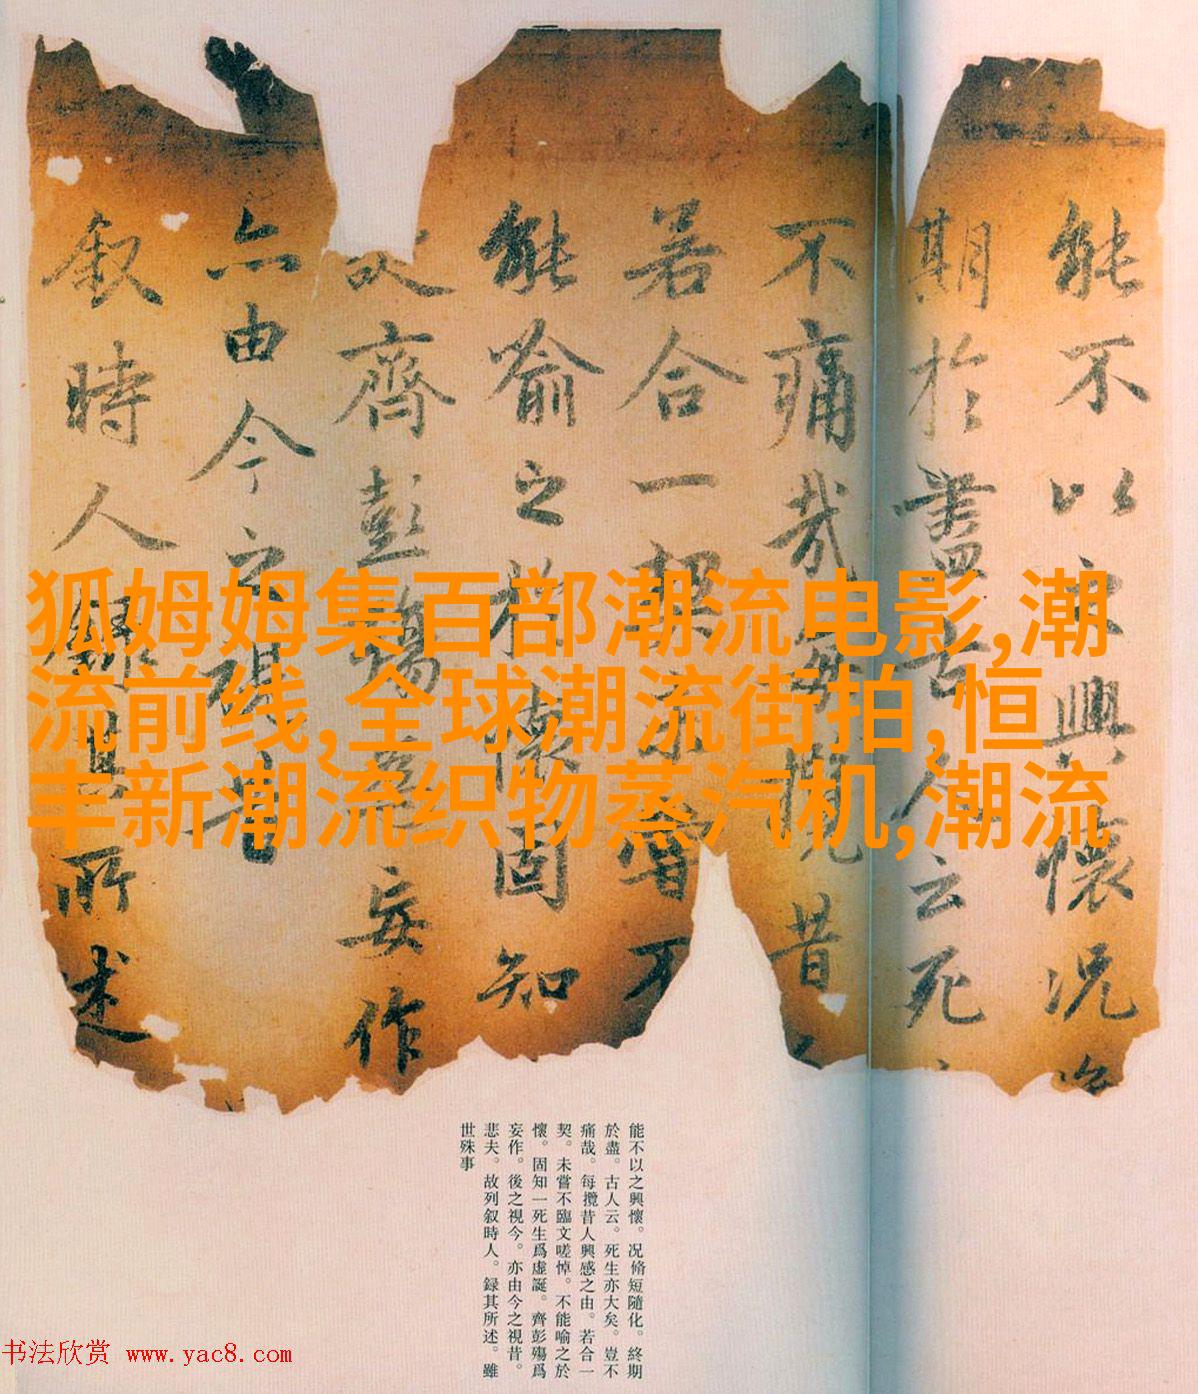 能不以之興懷况
期於盡古人云死
不痛哉每攬昔
若合一契未嘗不
能喻之於懷固知
齊彭殤爲妄作
亦由今之視昔
叙時人録其所述
狐姆姆集百部潮流电影,潮
流前线,全球潮流街拍,恒
丰新潮流织物蒸汽机,潮流
能不以之興懷。况脩短隨化。終期
於盡。古人云。死生亦大矣。豈不
痛哉。每攬昔人興感之由。若合一
契。未嘗不臨文嗟悼。不能喻之於
懷。固知一死生爲虛誕。齊彭殤爲
妄作。後之視今。亦由今之視昔。
悲夫。故列叙時人。録其所述。雖
世殊事
书法欣赏 www.yac8.com